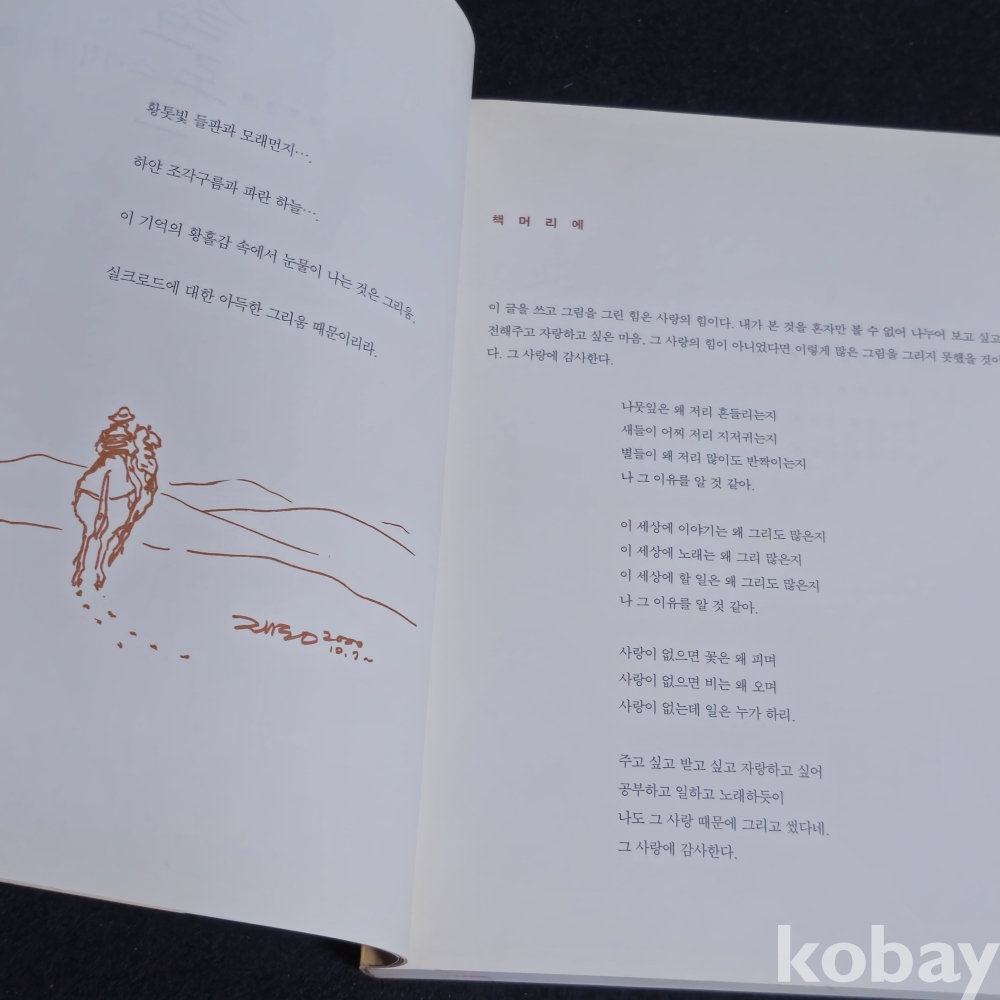 황톳빛 들판과 모래먼지….
하얀 조각구름과 파란 하늘….
이 기억의 황홀감 속에서 눈물이 나는 것은 그리움.
실크로드에 대한 아득한 그리움 때문이리라.
2000
10.7~
책 머리에
이 글을 쓰고 그림을 그린 힘은 사랑의 힘이다. 내가 본 것을 혼자만 볼 수 없어 나누어 보고 싶고
전해주고 자랑하고 싶은 마음, 그 사랑의 힘이 아니었다면 이렇게 많은 그림을 그리지 못했을 것이
다. 그 사랑에 감사한다.
나뭇잎은 왜 저리 흔들리는지
새들이 어찌 저리 지저귀는지
별들이 왜 저리 많이도 반짝이는지
나 그 이유를 알 것 같아.
이 세상에 이야기는 왜 그리도 많은지
이 세상에 노래는 왜 그리 많은지
이 세상에 할 일은 왜 그리도 많은지
나 그 이유를 알 것 같아.
사랑이 없으면 꽃은 왜 피며
사랑이 없으면 비는 왜 오며
사랑이 없는데 일은 누가 하리.
주고 싶고 받고 싶고 자랑하고 싶어
공부하고 일하고 노래하듯이
나도 그 사랑 때문에 그리고 썼다네.
그 사랑에 감사한다.
kobay